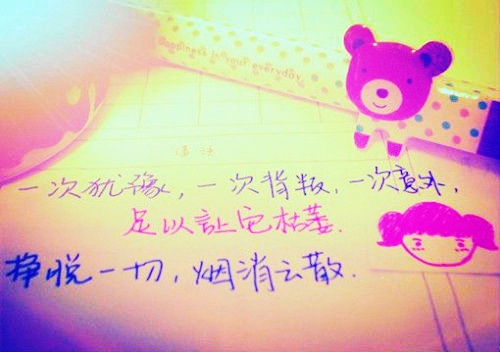 Happiness is your everyday
一次犹豫，一次背叛，一次意外，
足以讓它枯萎.
挣悦一切，烟消云散.